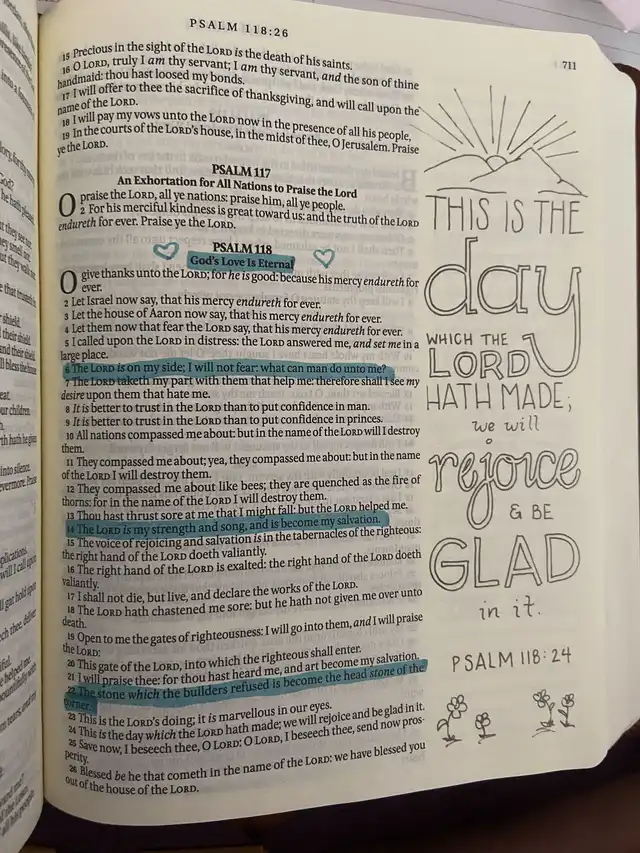 PSALM 118:26
711
15 Precious in the sight of the LORD is the death of his saints.
16 O LORD, truly I am thy servant; I am thy servant, and the son of thine
handmaid: thou hast loosed my bonds.
17 I will offer to thee the sacrifice of thanksgiving, and will call upon the
name of the LORD.
18 I will pay my vows unto the LORD now in the presence of all his people,
19 In the courts of the LORD's house, in the midst of thee, O Jerusalem. Praise
ye the LORD.
PSALM 117
An Exhortation for All Nations to Praise the Lord
O praise the LORD, all ye nations: praise him, all ye people.
2 For his merciful kindness is great toward us: and the truth of the LORD
endureth for ever. Praise ye the LORD.
PSALM 118
God's Love Is Eternal
O give thanks unto the LORD; for he is good: because his mercy endureth for
ever.
2 Let Israel now say, that his mercy endureth for ever.
3 Let the house of Aaron now say, that his mercy endureth for ever.
4 Let them now that fear the LORD say, that his mercy endureth for ever.
5 I called upon the LORD in distress: the LORD answered me, and set me in a
large place.
6 The LORD is on my side; I will not fear: what can man do unto me?
7 The LORD taketh my part with them that help me: therefore shall I see my
desire upon them that hate me.
8 It is better to trust in the LORD than to put confidence in man.
9 It is better to trust in the LORD than to put confidence in princes.
10 All nations compassed me about: but in the name of the LORD will I destroy
them.
11 They compassed me about; yea, they compassed me about: but in the name
of the LORD I will destroy them.
12 They compassed me about like bees; they are quenched as the fire of
thorns: for in the name of the LORD I will destroy them.
13 Thou hast thrust sore at me that I might fall: but the LORD helped me.
14 The LORD is my strength and song, and is become my salvation.
15 The voice of rejoicing and salvation is in the tabernacles of the righteous:
the right hand of the LORD doeth valiantly.
16 The right hand of the LORD is exalted: the right hand of the LORD doeth
valiantly.
17 I shall not die, but live, and declare the works of the LORD.
18 The LORD hath chastened me sore: but he hath not given me over unto
death.
19 Open to me the gates of righteousness: I will go into them, and I will praise
the LORD:
20 This gate of the LORD, into which the righteous shall enter.
21 I will praise thee: for thou hast heard me, and art become my salvation.
22 The stone which the builders refused is become the head stone of the
corner.
23 This is the LORD's doing; it is marvellous in our eyes.
24 This is the day which the LORD hath made; we will rejoice and be glad in it.
25 Save now, I beseech thee, O LORD: O LORD, I beseech thee, send now pros-
perity.
26 Blessed be he that cometh in the name of the LORD: we have blessed you
out of the house of the LORD.
THIS IS THE
day
WHICH THE
LORD
HATH MADE;
we will
rejoice
& BE
GLAD
in it.
PSALM 118:24